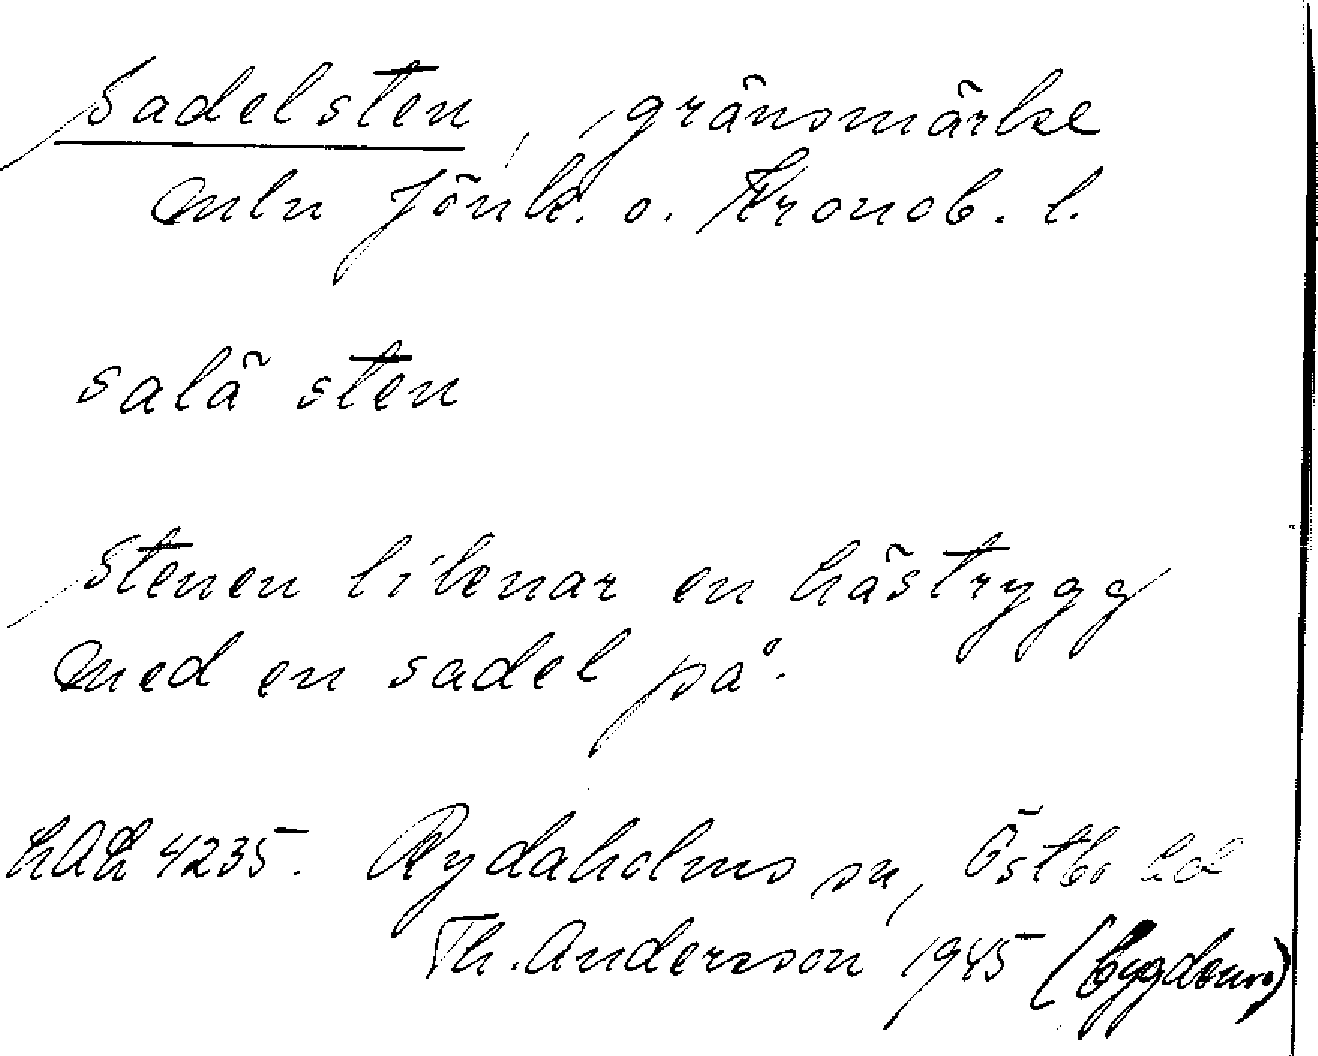 Sadelsten, gränsmärke
mln Jönk. o. Kronob. l.
salä sten
Stenen liknar en hästrygg
med en sadel på.
LAL 4235. Rydaholms sn, Östbo hd
Th. Andersson 1945 (bygdeurs)